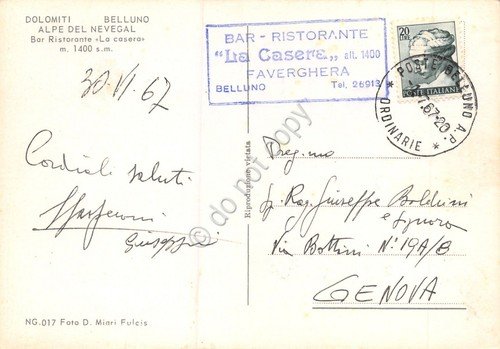 DOLOMITI BELLUNO
ALPE DEL NEVEGAL
Bar Ristorante «La casera»
m. 1400 s.m.
30.VI.67
Cordiali saluti
Giuseppe
NG.017 Foto D. Miari Fulcis
Riproduzione vietata
BAR - RISTORANTE
"La Casera" alt. 1400
FAVERGHERA
BELLUNO Tel. 26913
20
LIRE
POSTE ITALIANE
* POSTE BELLUNO A.P. *
7.67-20
ORDINARIE
Preg.mo
Rag. Giuseppe Balduini
e Signora
Via Bottini N° 19A/8
GENOVA
do not copy!